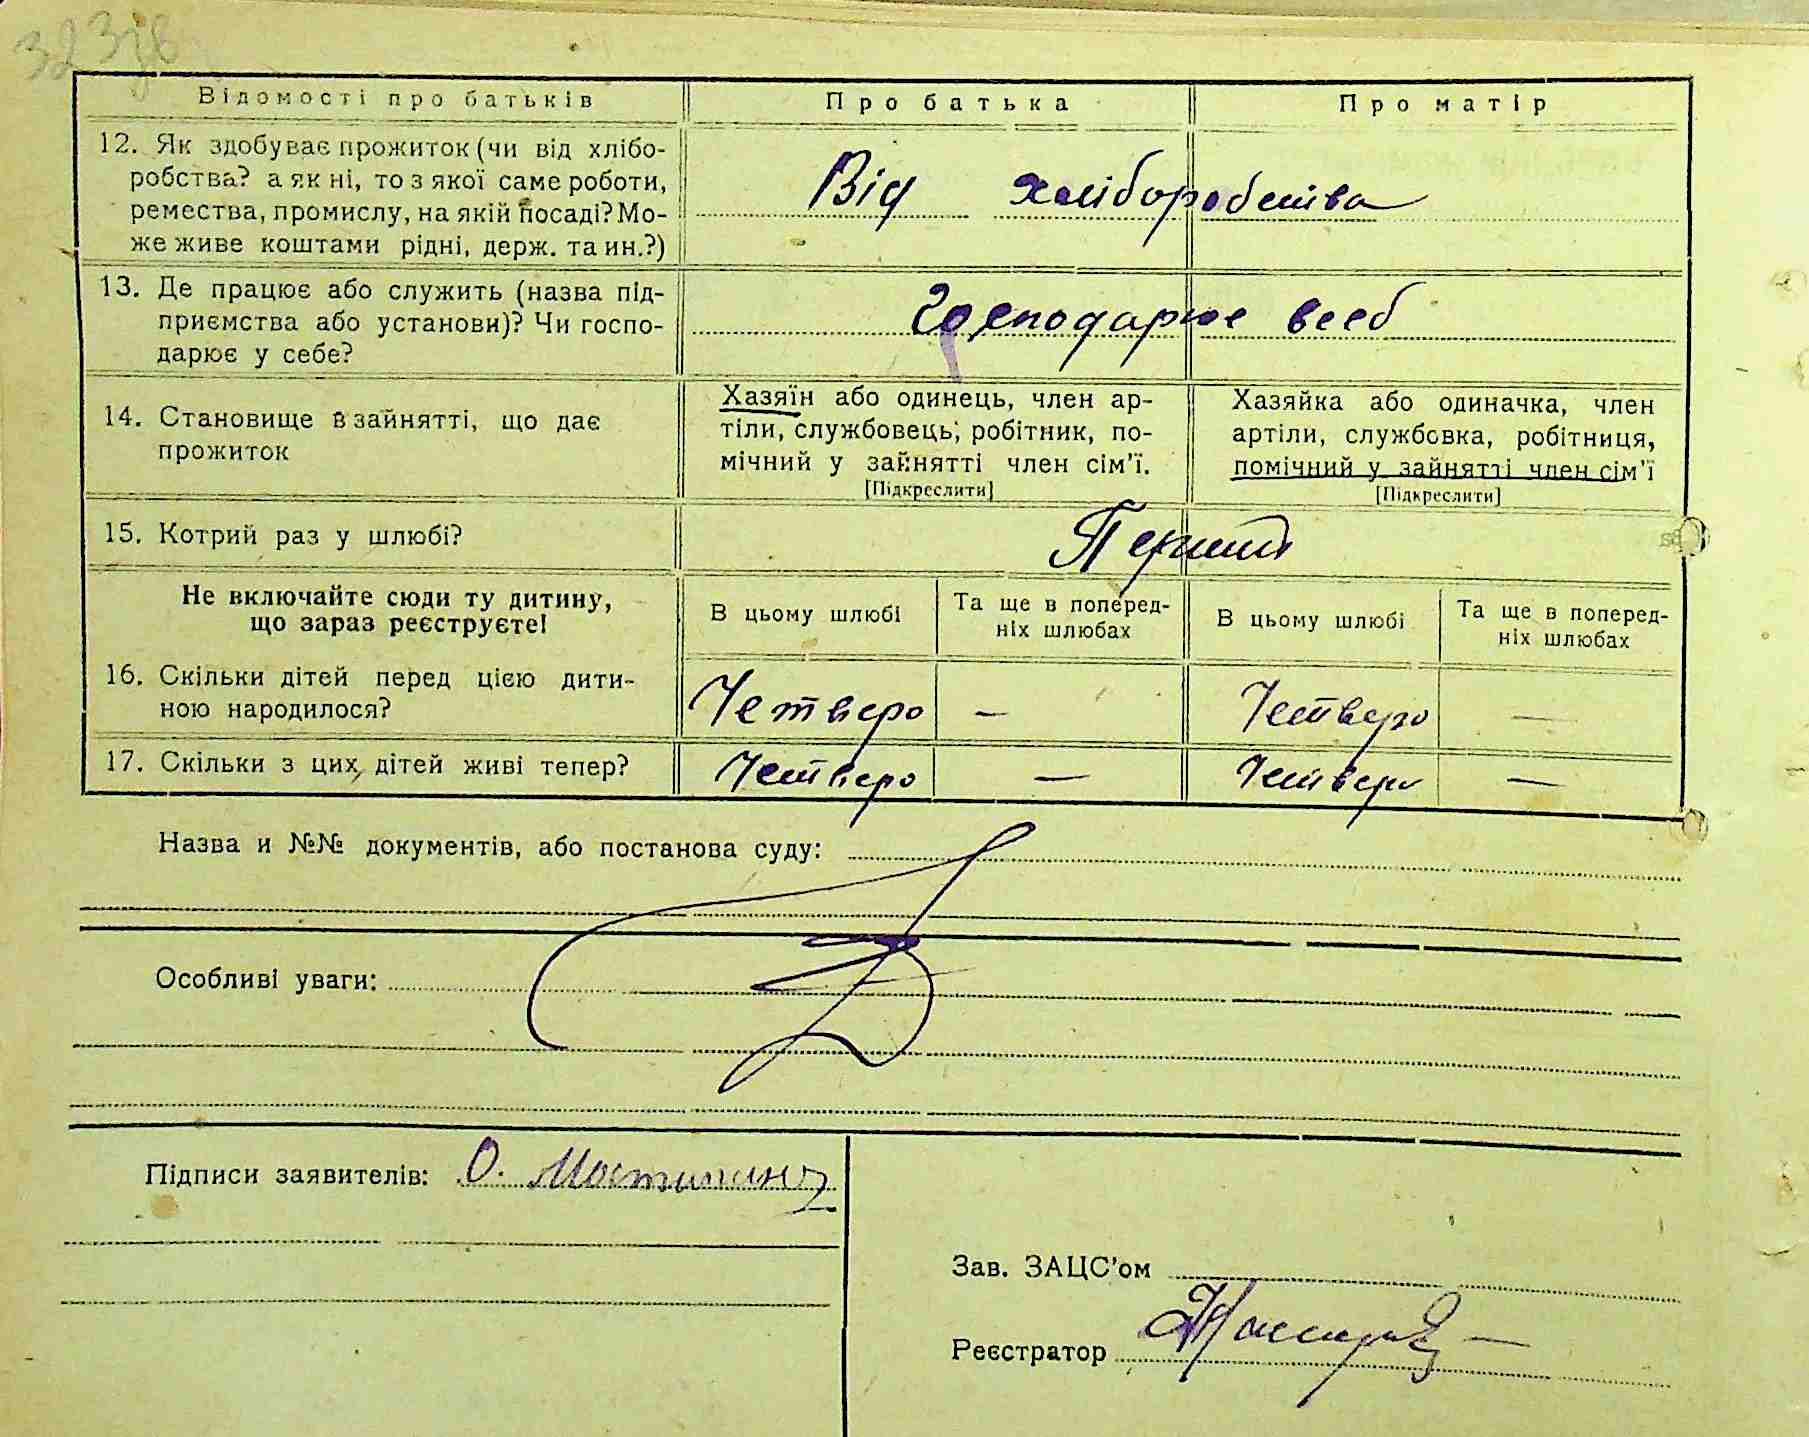 323зв
Відомості про батьків
Про батька
Про матір
12. Як здобуває прожиток (чи від хлібо-
робства? а як ні, то з якої саме роботи,
ремества, промислу, на якій посаді? Мо-
же живе коштами рідні, держ. та ин.?)
Від хліборобства
13. Де працює або служить (назва під-
приємства або установи)? Чи госпо-
дарює у себе?
Господарює в себ
14. Становище в зайнятті, що дає
прожиток
Хазяїн або одинець, член ар-
тіли, службовець, робітник, по-
мічний у зайнятті член сім'ї.
[Підкреслити]
Хазяйка або одиначка, член
артіли, службовка, робітниця,
помічний у зайнятті член сім'ї
[Підкреслити]
15. Котрий раз у шлюбі?
Перший
Не включайте сюди ту дитину,
що зараз реєструєте!
В цьому шлюбі
Та ще в поперед-
ніх шлюбах
В цьому шлюбі
Та ще в поперед-
ніх шлюбах
16. Скільки дітей перед цією дити-
ною народилося?
Четверо – Четверо —
17. Скільки з цих дітей живі тепер?
Четверо — Четверо —
Назва и №№ документів, або постанова суду:
Особливі уваги:
Підписи заявителів: О.
Зав. ЗАЦС'ом
Реєстратор